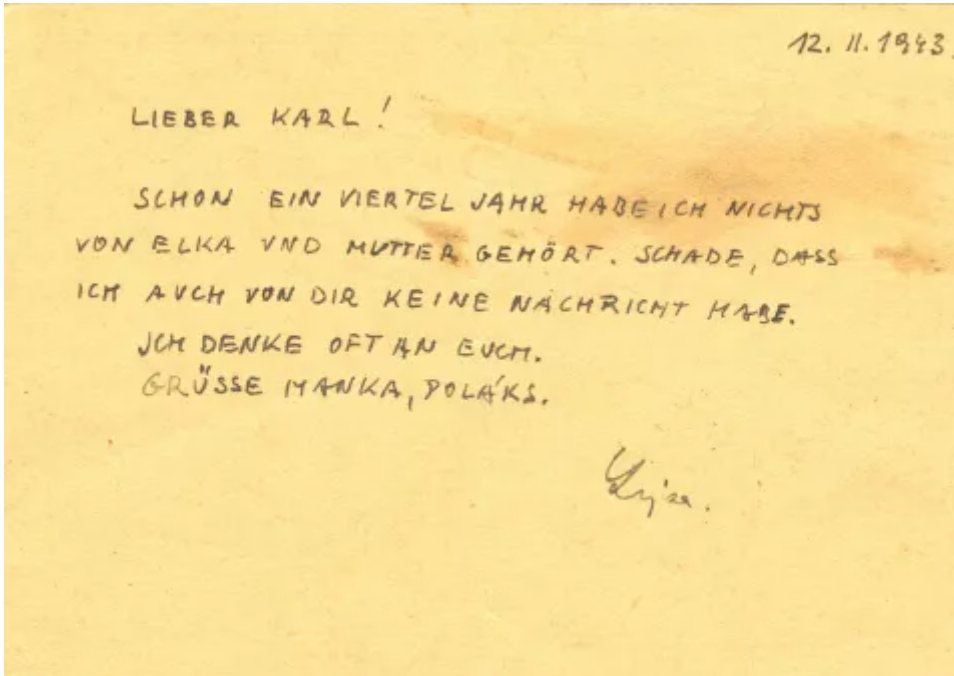 12. II. 1943.
LIEBER KARL!
SCHON EIN VIERTEL JAHR HABE ICH NICHTS
VON ELKA VND MUTTER GEHÖRT. SCHADE, DASS
ICH AVCH VON DIR KEINE NACHRICHT HABE.
JCH DENKE OFT AN EVCH.
GRÜSSE MANKA, POLÁKS.